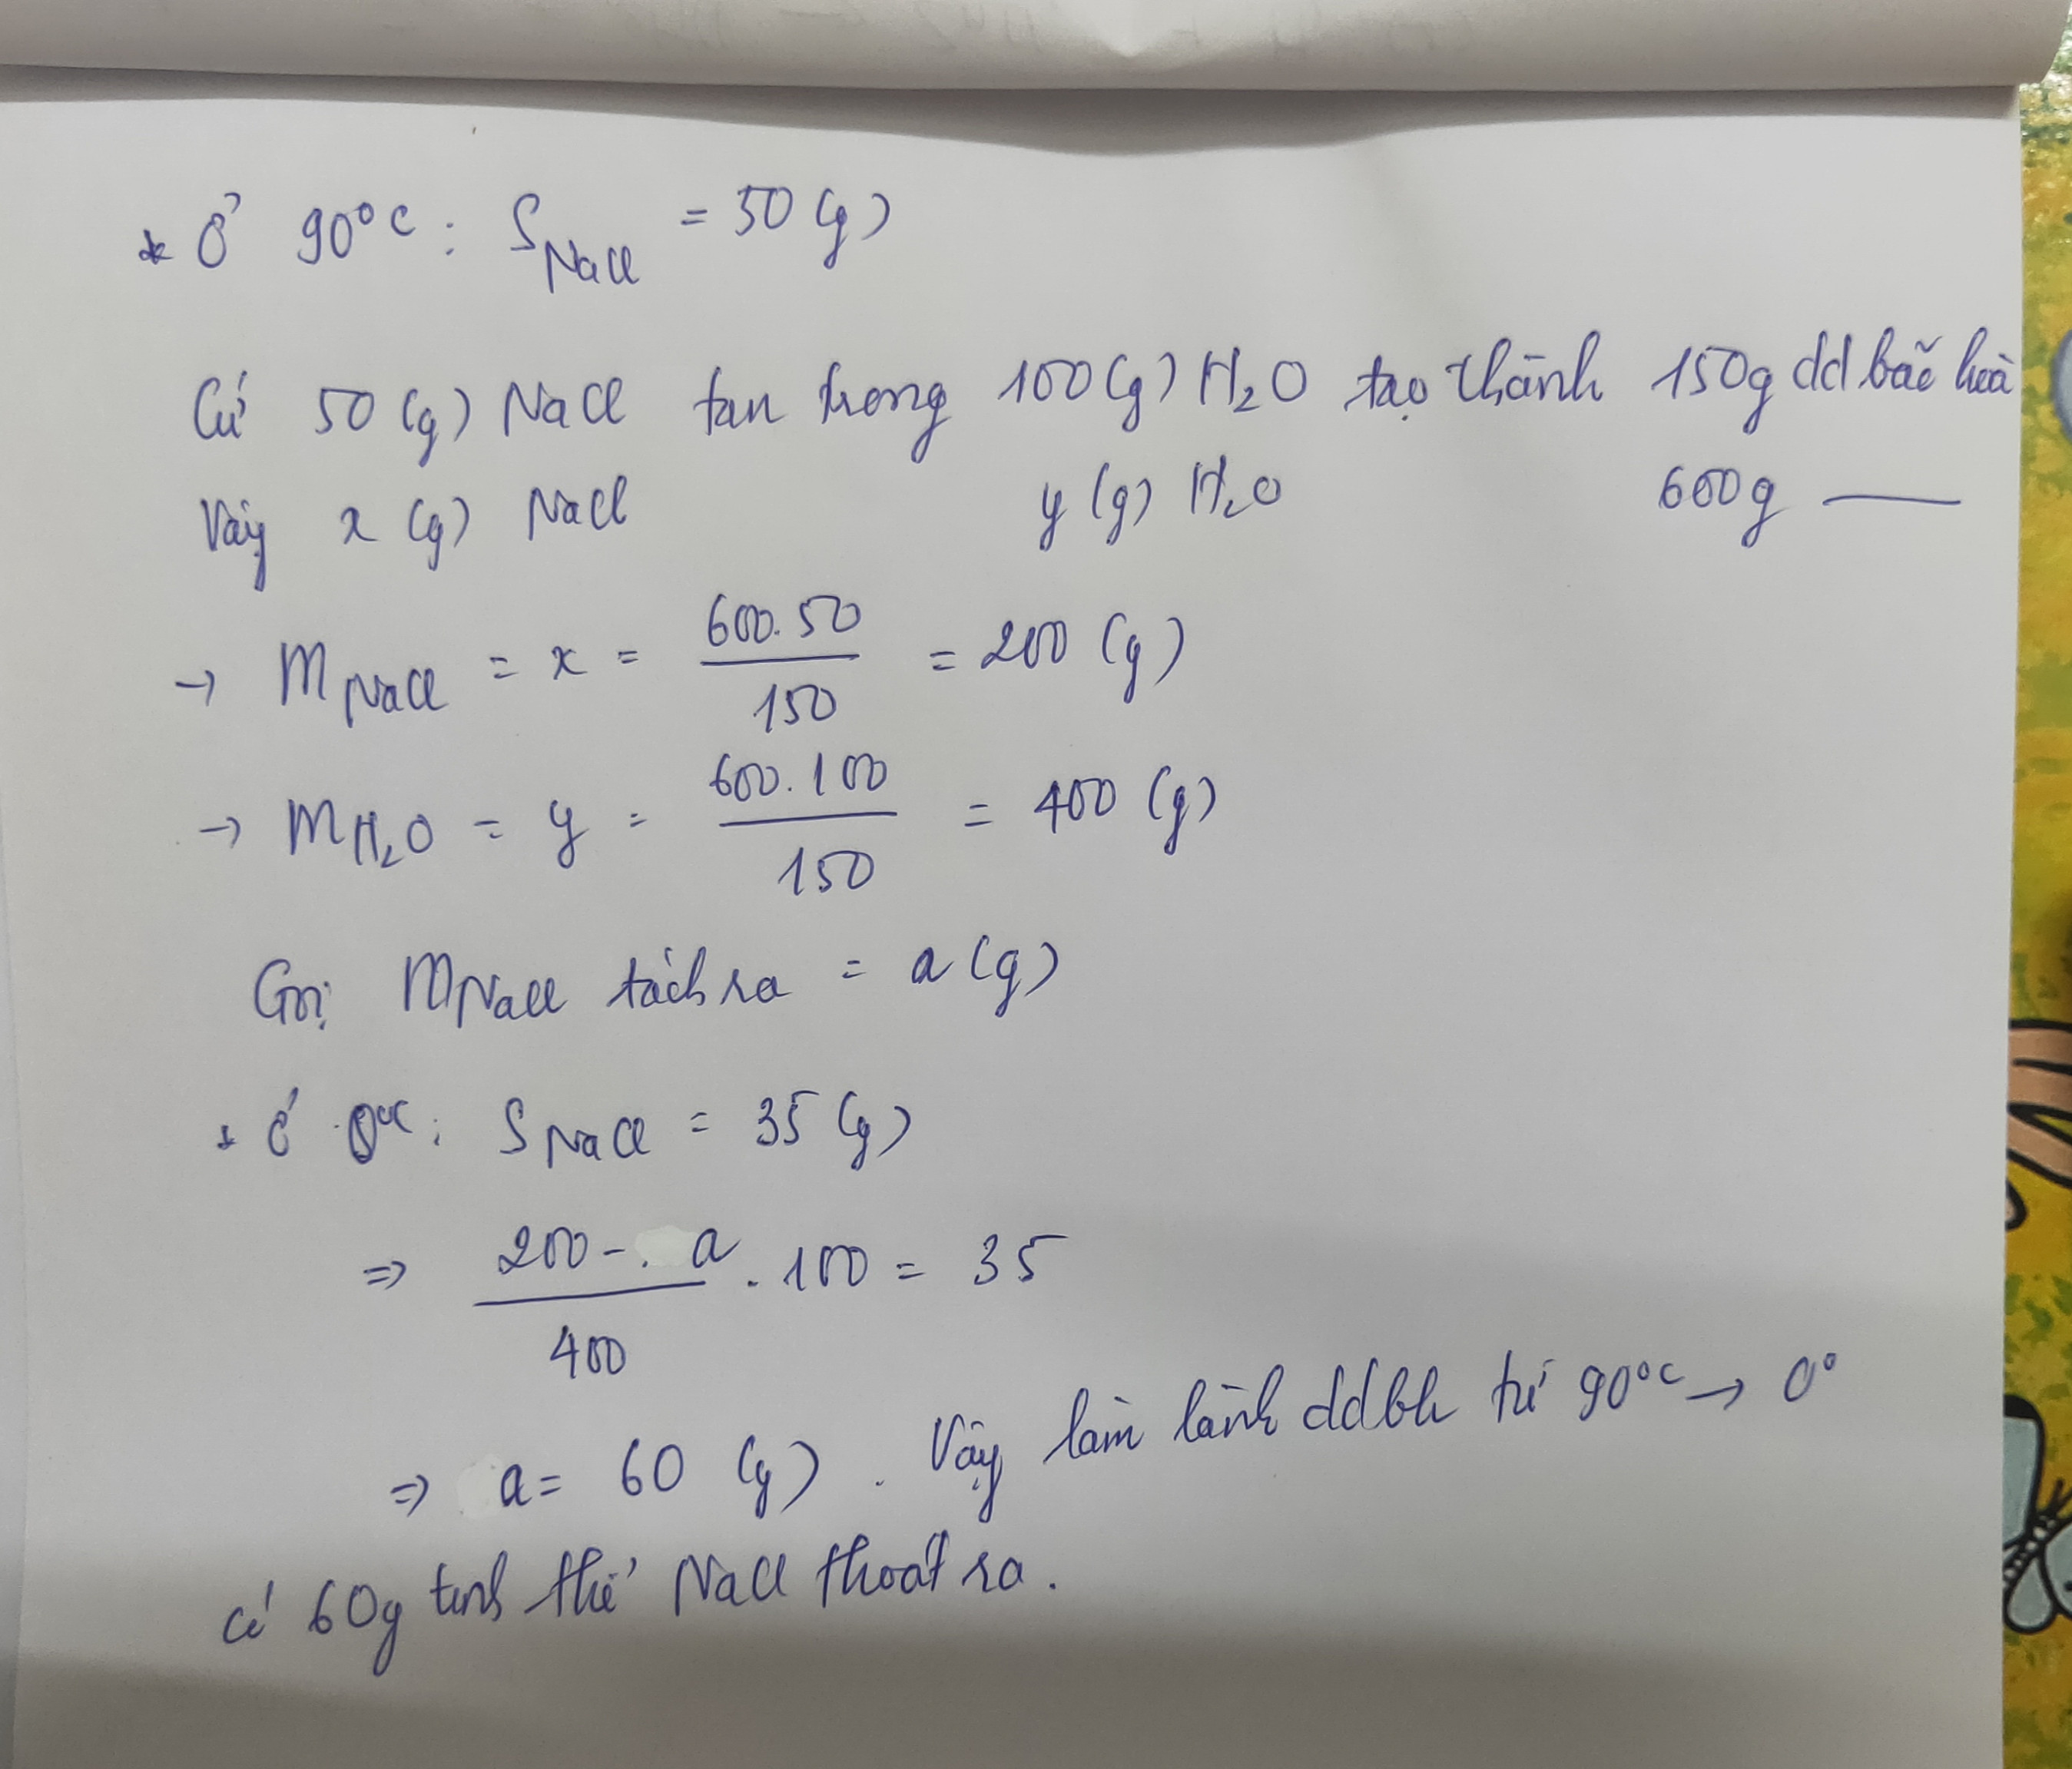 * Ở 90°C : S NaCl = 50 (g)
Cứ 50 (g) NaCl tan trong 100 (g) H₂O tạo thành 150g dd bão hoà
Vậy x (g) NaCl y (g) H₂O 600g —
→ m NaCl = x = 600.50 / 150 = 200 (g)
→ m H₂O = y = 600.100 / 150 = 400 (g)
Gọi m NaCl tách ra = a (g)
* Ở 0°C : S NaCl = 35 (g)
⇒ 200 - a / 400 . 100 = 35
⇒ a = 60 (g) . Vậy làm lạnh ddbh từ 90°C → 0°
có 60g tinh thể NaCl thoát ra .